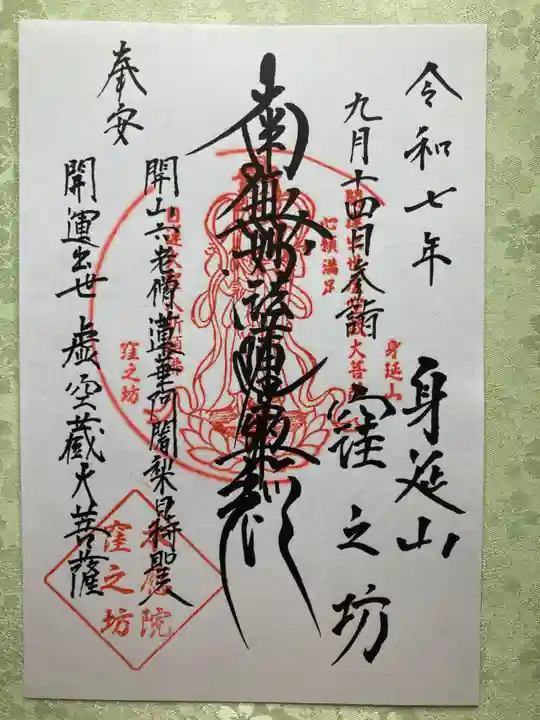 令和七年 身延山
九月十四日参詣 窪之坊
南無妙法蓮華経
開山六老僧蓮華阿闍梨日持聖人
奉安
開運出世 虚空蔵大菩薩
心願満足
身延山
窪之坊
窪之坊